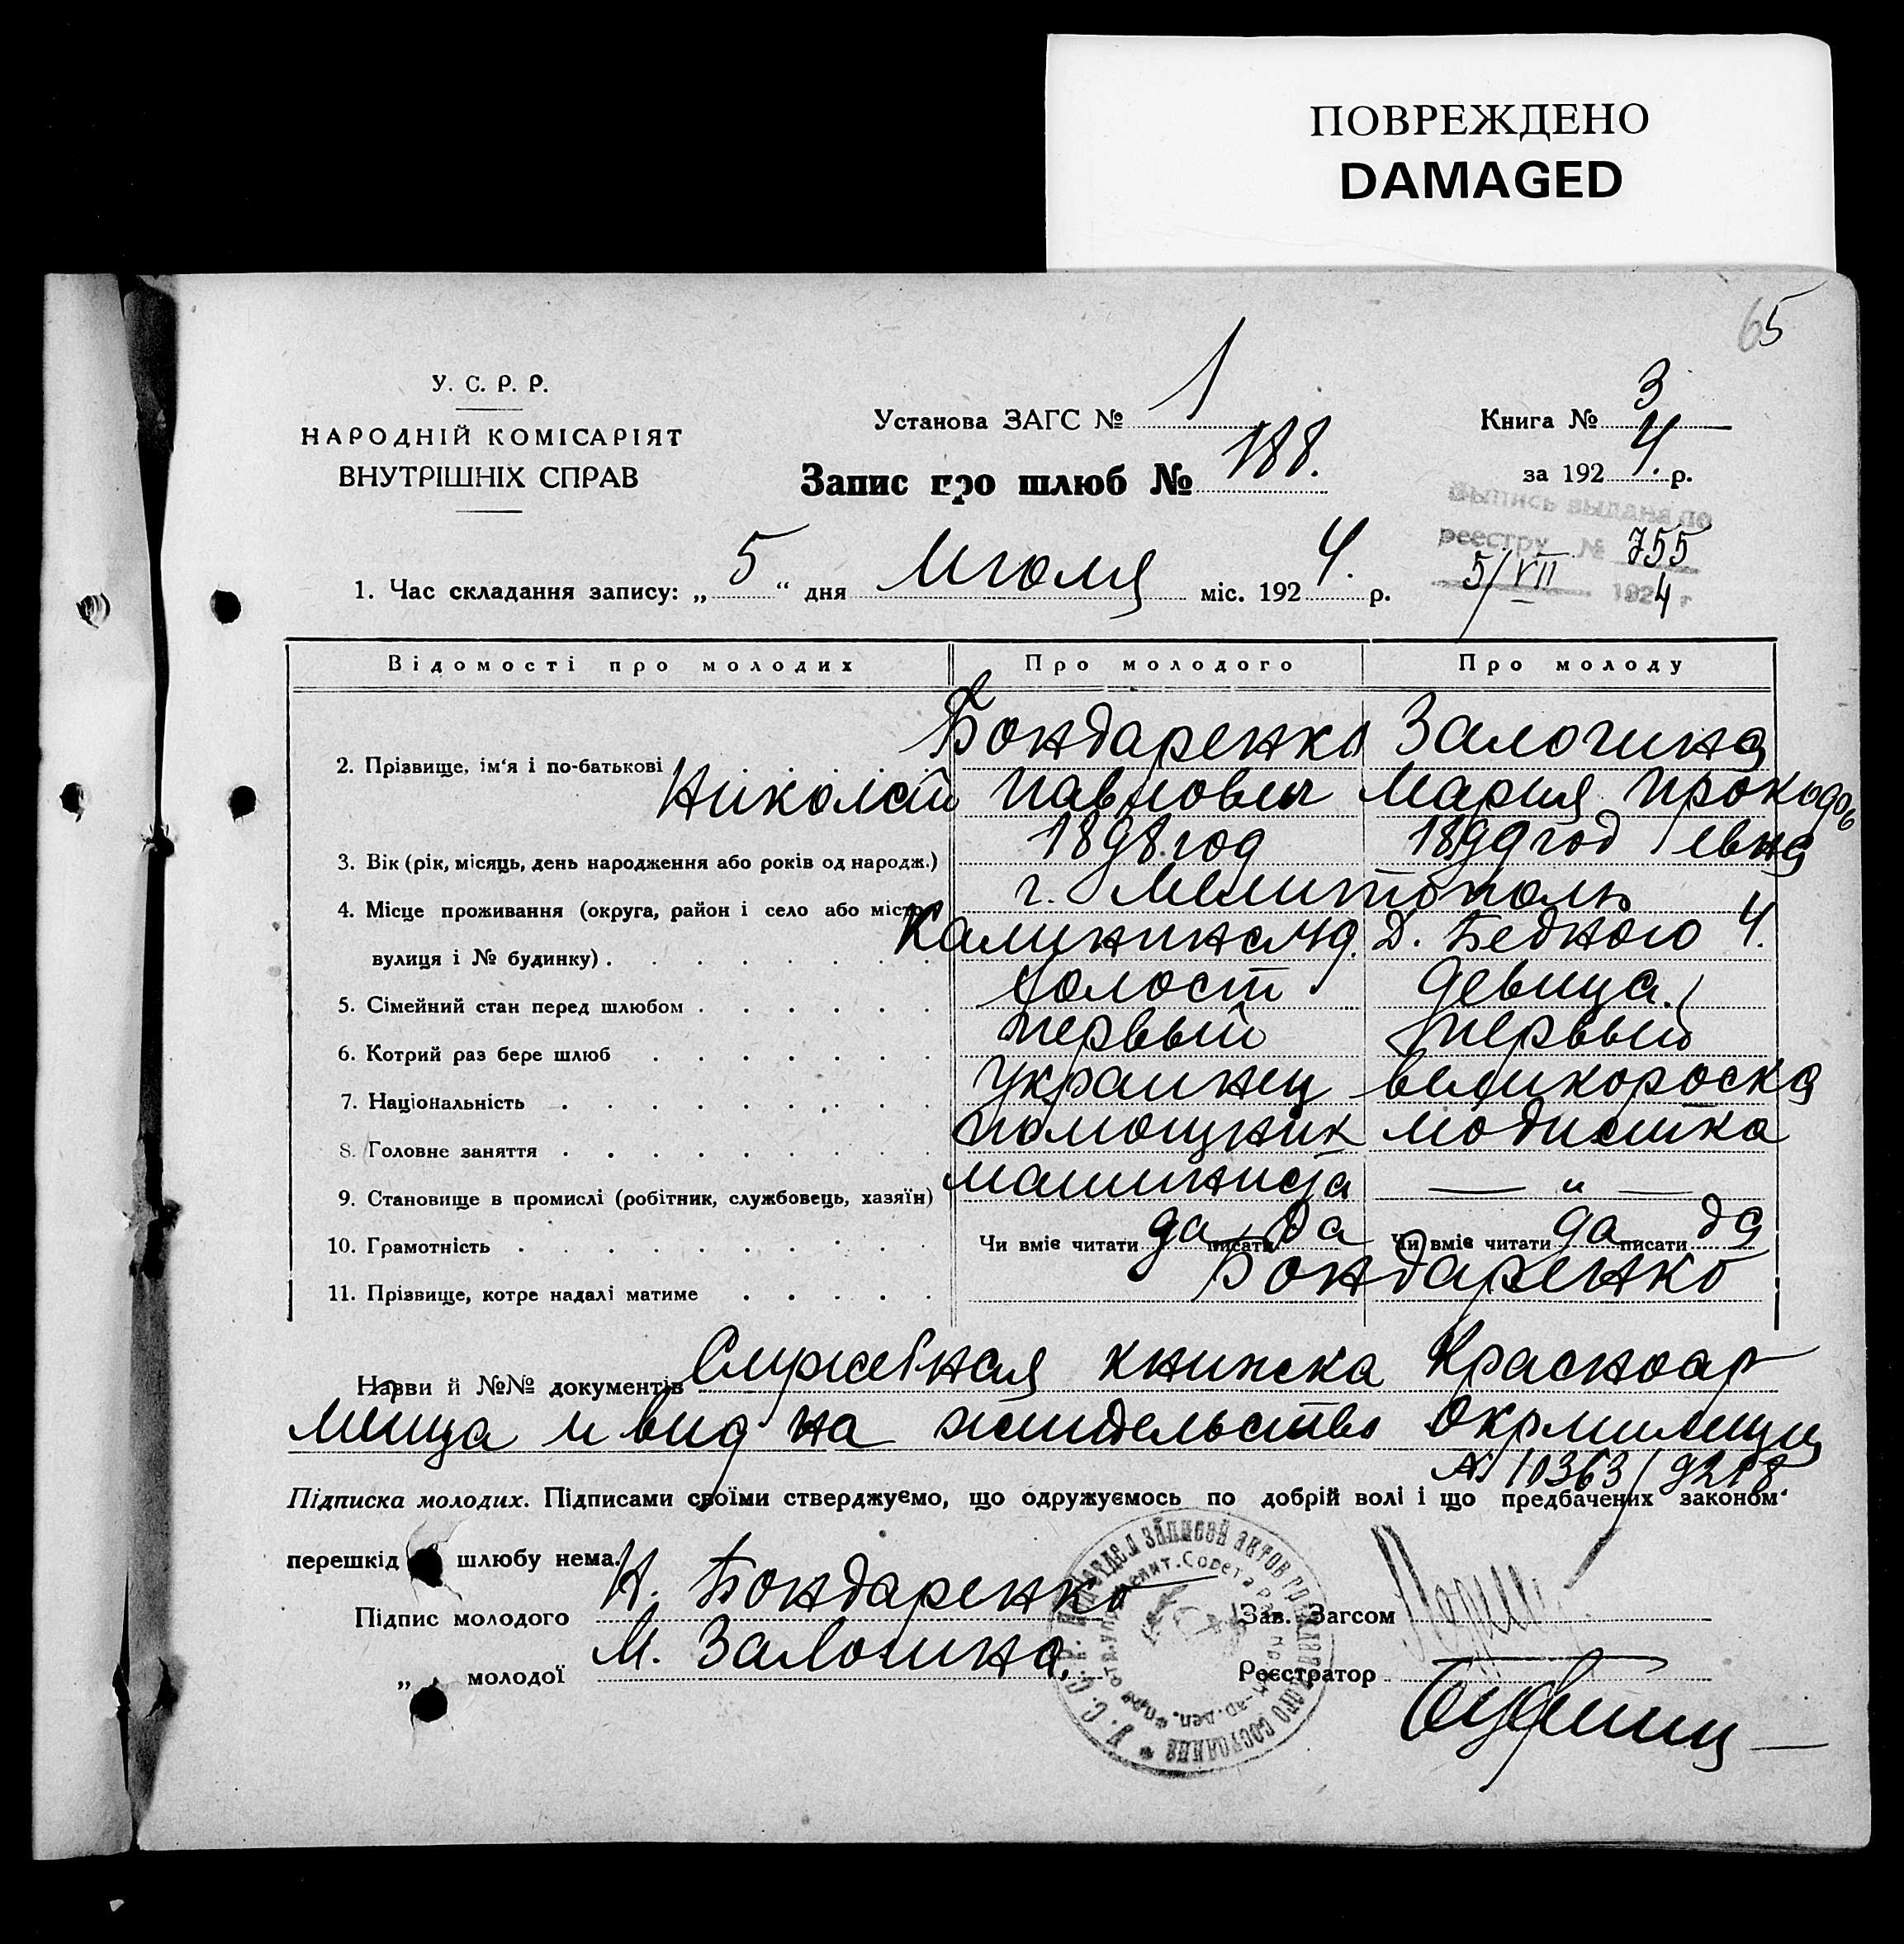 ПОВРЕЖДЕНО
DAMAGED
65
У. С. Р. Р.
НАРОДНІЙ КОМІСАРІЯТ
ВНУТРІШНІХ СПРАВ
Установа ЗАГС № 1
Запис про шлюб № 188.
Книга № 3
за 1924. р.
Выпись выдана по
реестру № 755
5/VII 1924 г
1. Час складання запису: „ 5 “ дня Июля міс. 1924. р.
Відомості про молодих Про молодого Про молоду
2. Прізвище, ім'я і по-батькові Бондаренко Залогина
Николай Павлович Мария Прокофь
евна
3. Вік (рік, місяць, день народження або років од народж.) 1898 год 1899 год
4. Місце проживання (округа, район і село або місто, г. Мелитополь
вулиця і № будинку) Калинина Д. Бедного 4.
5. Сімейний стан перед шлюбом холост девица
6. Котрий раз бере шлюб первый первый
7. Національність украинец великороска
8. Головне заняття помощник модистка
9. Становище в промислі (робітник, службовець, хазяїн) машиниста — „ —
10. Грамотність Чи вміє читати да писати да Чи вміє читати да писати да
11. Прізвище, котре надалі матиме Бондаренко
Назви й №№ документів Служебная книжка Красноар
мейца и вид на жительство Окрмилиции
№ 10363/9218
Підписка молодих. Підписами своїми стверджуємо, що одружуємось по добрій волі і що предбачених законом
перешкід шлюбу нема.
Підпис молодого Н. Бондаренко
„ молодої М. Залогина
Зав. Загсом
Реєстратор
У.С.С.Р. Подотдел записей актов гражданского состояния